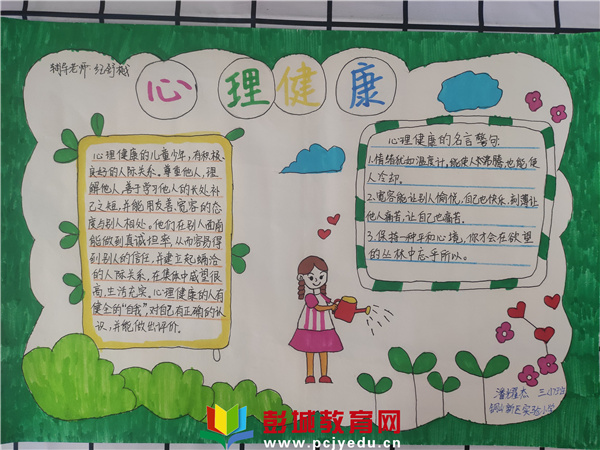 辅导老师
心理健康
心理健康的儿童少年,有积极、
良好的人际关系。尊重他人,理
解他人,善于学习他人的长处补
己之短,并能用友善、宽容的态
度与别人相处。他们在别人面前
能做到真诚坦率,从而容易得
到别人的信任,并建立起融洽
的人际关系,在集体中威望很
高,生活充实。心理健康的人有
健全的“自我”,对自己有正确的认
识,并能做出评价。
心理健康的名言警句:
1.情绪犹如温度计,能使人沸腾,也能使
人冷却。
2.宽容能让别人愉悦,自己也快乐,刻薄让
他人痛苦,让自己也痛苦。
3.保持一种平和心境,你才会在欲望
的丛林中忘乎所以。
铜山新区实验小学
彭城教育网
www.pcjyedu.cn